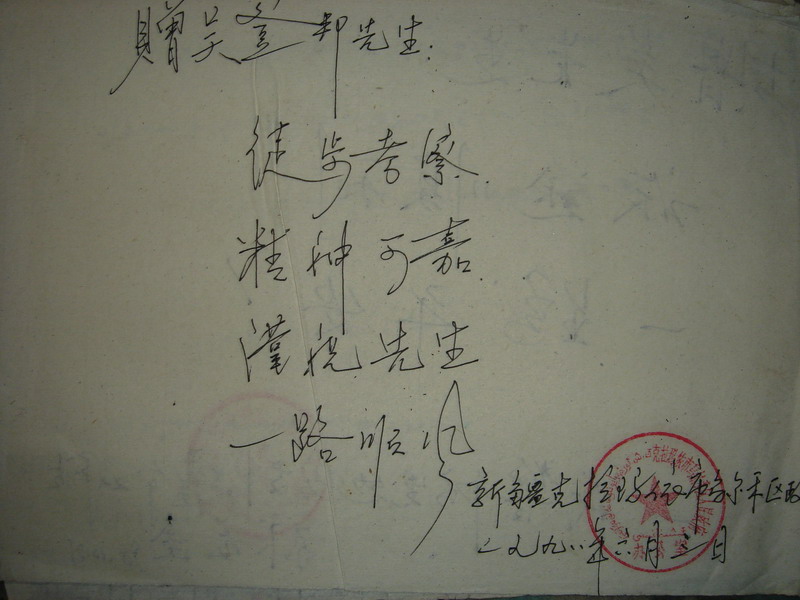 贈吴登邦先生.
徒步考察
精神可嘉
谨祝先生
一路顺风
新疆克拉玛依市乌尔禾区政
一九九八年六月三日